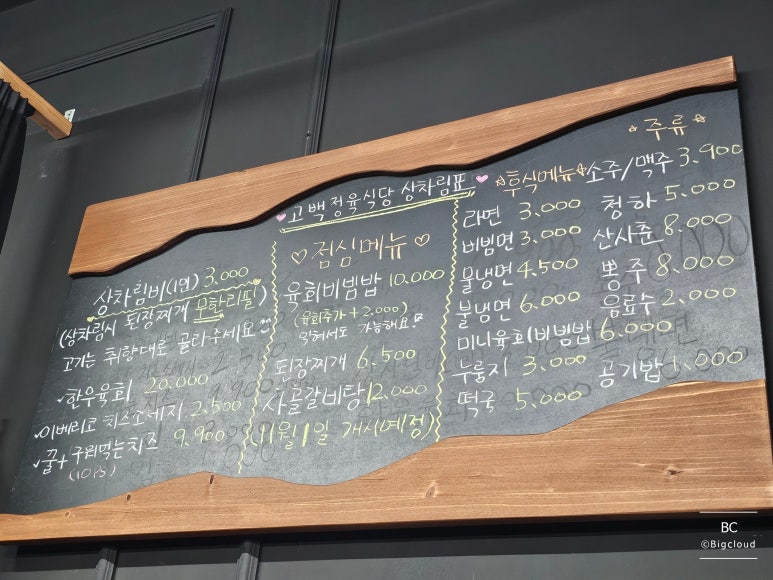 고백정육식당 상차림표
상차림비(1인) 3,000
(상차림시 된장찌개 무한리필)
고기는 취향대로 골라주세요
한우육회 20,000
이베리코 치즈소세지 2,500
꿀+구워먹는치즈 9,900
(10PS)
점심메뉴
육회비빔밥 10,000
(육회추가 + 2,000)
익혀서도 가능해요!
된장찌개 6,500
사골갈비탕 12,000
(11월 1일 개시예정)
후식메뉴
라면 3,000
비빔면 3,000
물냉면 4,500
불냉면 6,000
미니육회비빔밥 6,000
누룽지 3,000
떡국 5,000
주류
소주/맥주 3,900
청하 5,000
산사춘 8,000
뽕주 8,000
음료수 2,000
공기밥 1,000
BC
©Bigcloud